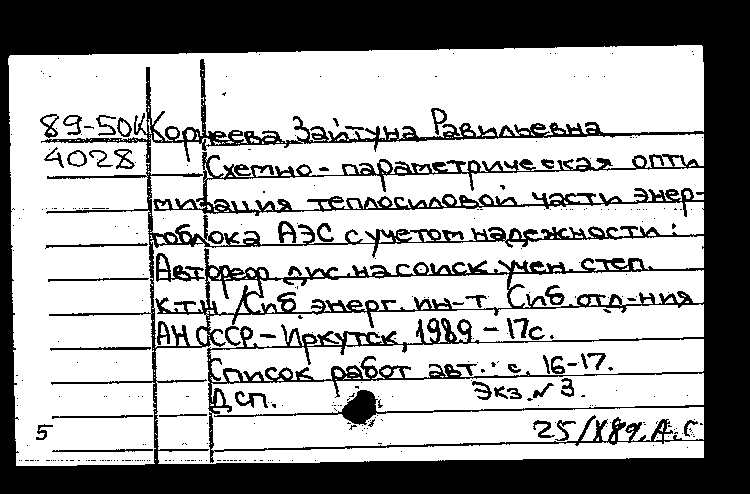 89-50К Корнеева, Зайтуна Равильевна
4028 Схемно-параметрическая опти
мизация теплосиловой части энер-
гоблока АЭС с учетом надежности:
Автореф. дис. на соиск. учен. степ.
к.т.н. /Сиб. энерг. ин-т, Сиб. отд-ния
АН СССР. - Иркутск, 1989. - 17с.
Список работ авт.: с. 16-17.
ДСП. Экз. № 3.
5 25/X89г. А.С